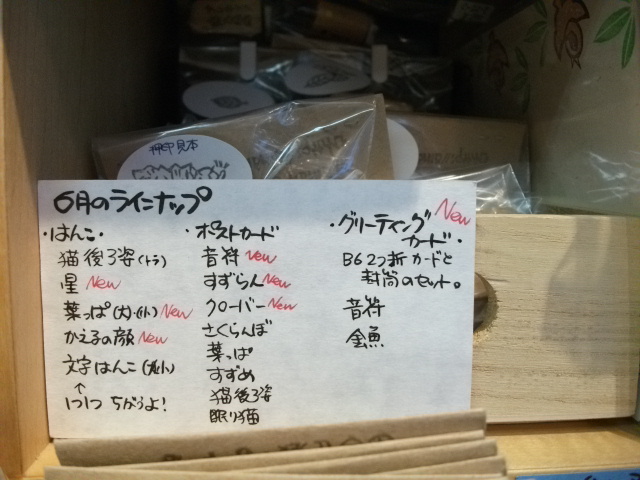 押印見本
6月のラインナップ
・はんこ・
猫後ろ姿(トラ)
星 New
葉っぱ(大)・(小) New
かえるの顔 New
文字はんこ
↑
1つ1つ ちがうよ!
・ポストカード
音符 New
すずらん New
クローバー New
さくらんぼ
葉っぱ
すずめ
猫後ろ姿
眠り猫
・グリーティング New
カード・
B6 2つ折カードと
封筒のセット。
音符
金魚